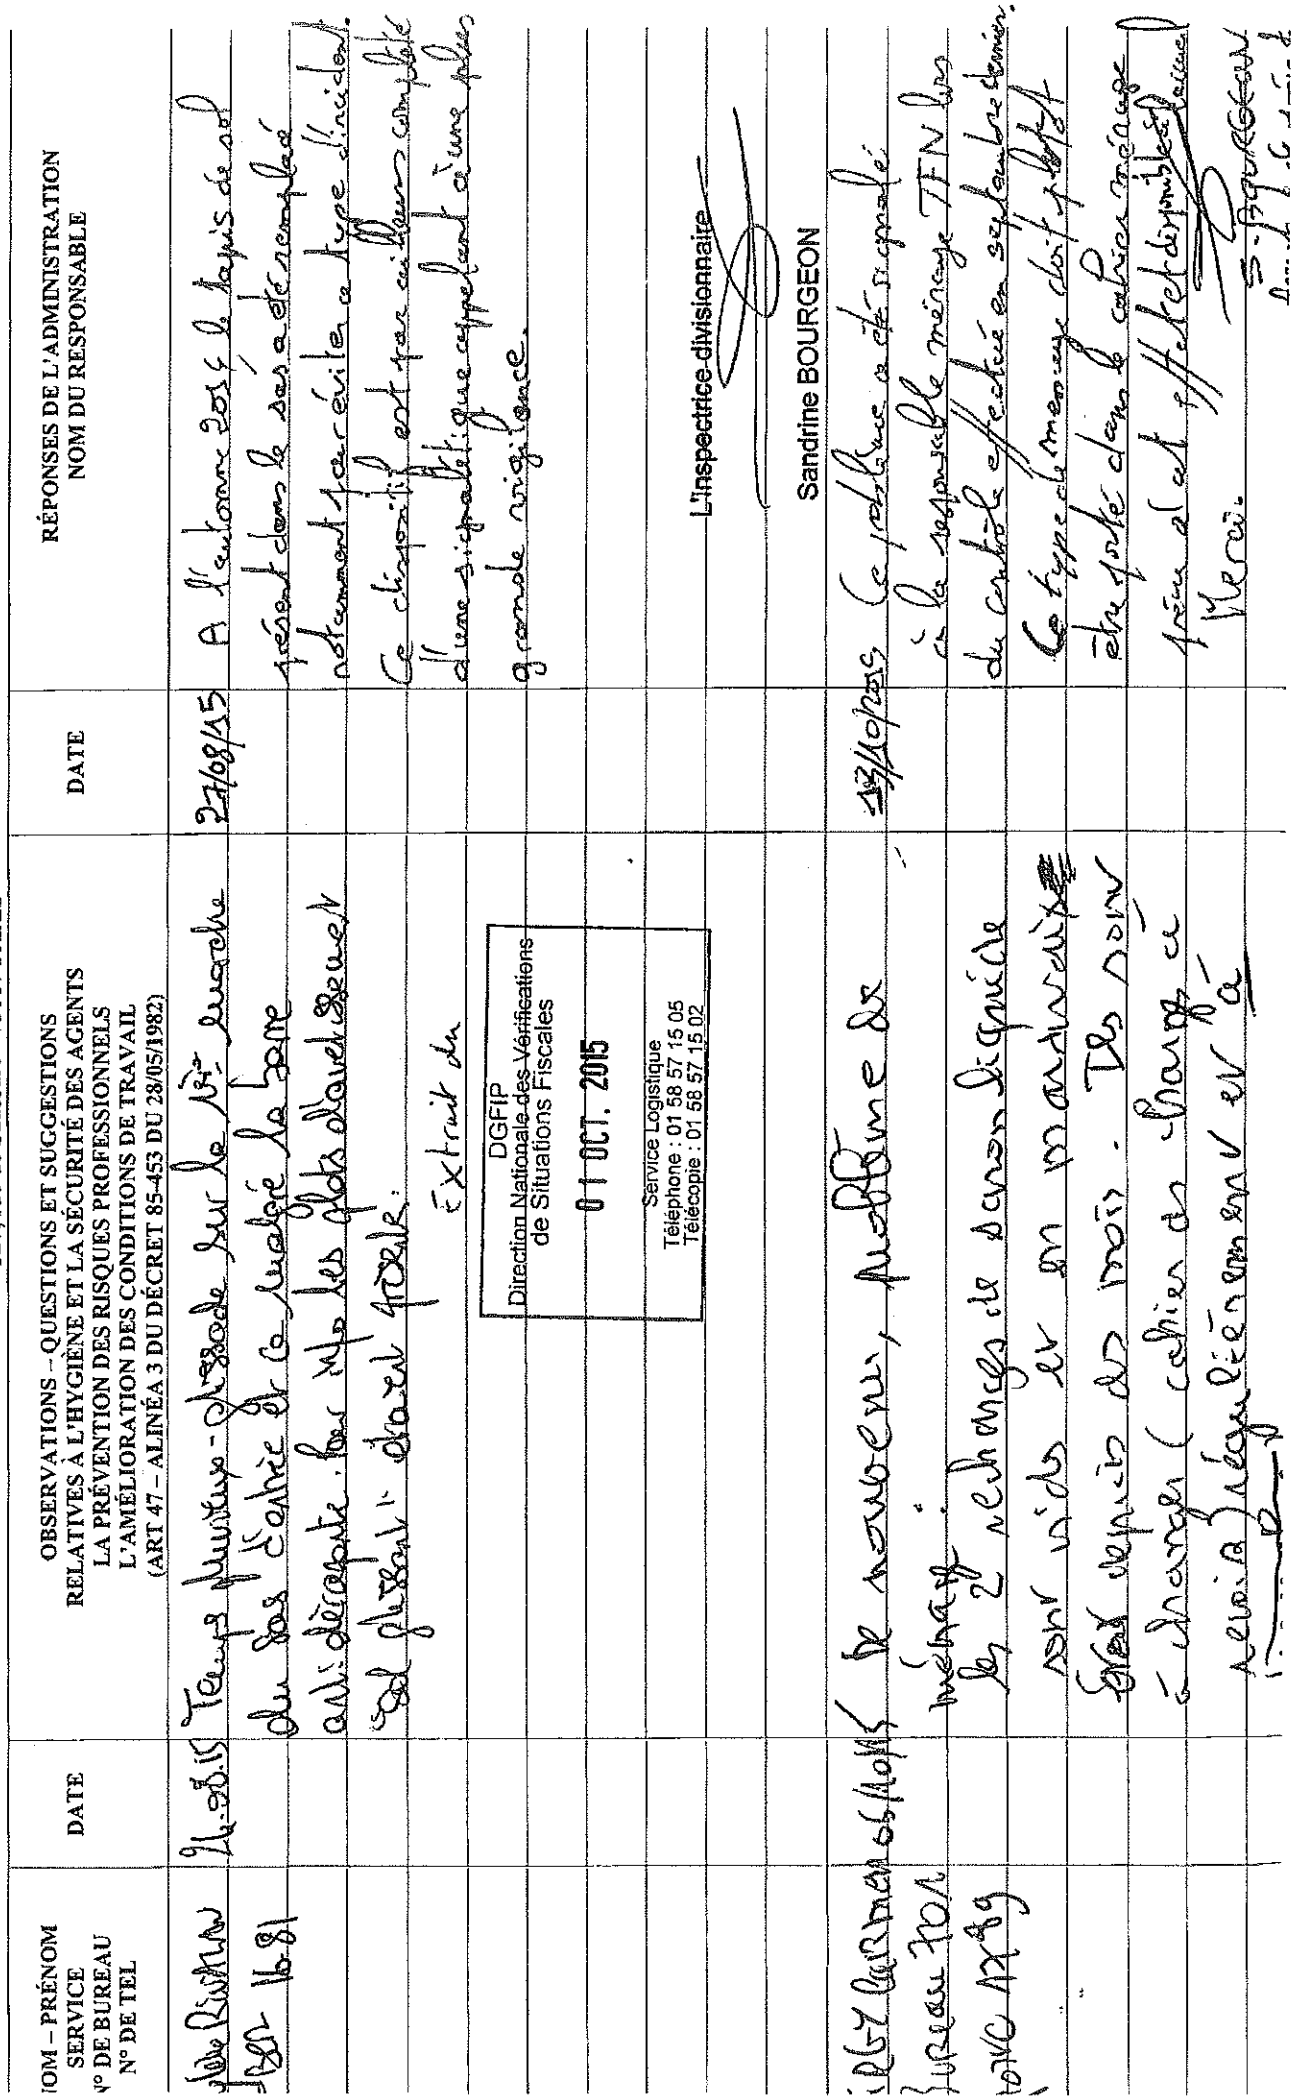 NOM – PRÉNOM
SERVICE
N° DE BUREAU
N° DE TEL
DATE
OBSERVATIONS – QUESTIONS ET SUGGESTIONS
RELATIVES À L'HYGIÈNE ET LA SÉCURITÉ DES AGENTS
LA PRÉVENTION DES RISQUES PROFESSIONNELS
L'AMÉLIORATION DES CONDITIONS DE TRAVAIL
(ART 47 – ALINÉA 3 DU DÉCRET 85-453 DU 28/05/1982)
DATE
RÉPONSES DE L'ADMINISTRATION
NOM DU RESPONSABLE
16.81
Temps pluvieux - glissade sur la 1ère marche
du sas d'entrée et ce malgré la barre
antidérapante. Pour info les plots d'avertissement
"sol glissant" étaient
Extrait du
DGFIP
Direction Nationale des Vérifications
de Situations Fiscales
01 OCT. 2015
Service Logistique
Téléphone : 01 58 57 15 05
Télécopie : 01 58 57 15 02
27/08/15
A l'automne 2014 le tapis de sol
présent dans le sas a été remplacé
notamment pour éviter ce type d'incident.
Ce dispositif est par ailleurs complété
d'une signalétique appelant à une plus
grande vigilance.
L'Inspectrice divisionnaire
Sandrine BOURGEON
Carmen
Bureau 701
De nouveau, problème de
ménage.
les 2 recharges de savon liquide
sont vides et en
depuis des mois. Ils sont
à changer (cahier des charges à
revoir) régulièrement et à
13/10/2015
Ce problème a été signalé
à la responsable ménage TFN lors
du contrôle effectué en septembre dernier.
Ce type de message doit plutôt
être porté dans le cahier ménage
prévu à cet effet et disponible à l'accueil
Merci.
S. BOURGEON